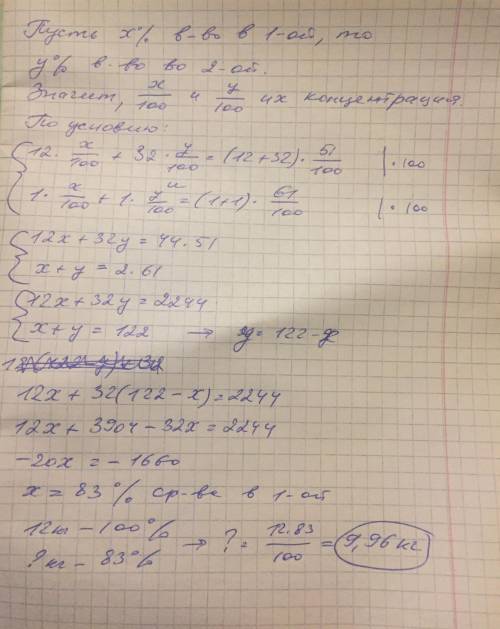 Пусть x% в-во в 1-ой, то
y% в-во во 2-ой.
Значит, x/100 и y/100 их концентрация.
По условию:
{ 12 · x/100 + 32 · y/100 = (12+32) · 51/100 | · 100
и
1 · x/100 + 1 · y/100 = (1+1) · 61/100 | · 100
{ 12x + 32y = 44 · 51
x + y = 2 · 61
{ 12x + 32y = 2244
x + y = 122 → y = 122 - x
12x + 32(122 - x) = 2244
12x + 3904 - 32x = 2244
-20x = -1660
x = 83% ср-ва в 1-ой
12кг - 100%
?кг - 83% → ? = 12·83/100 = 9,96кг